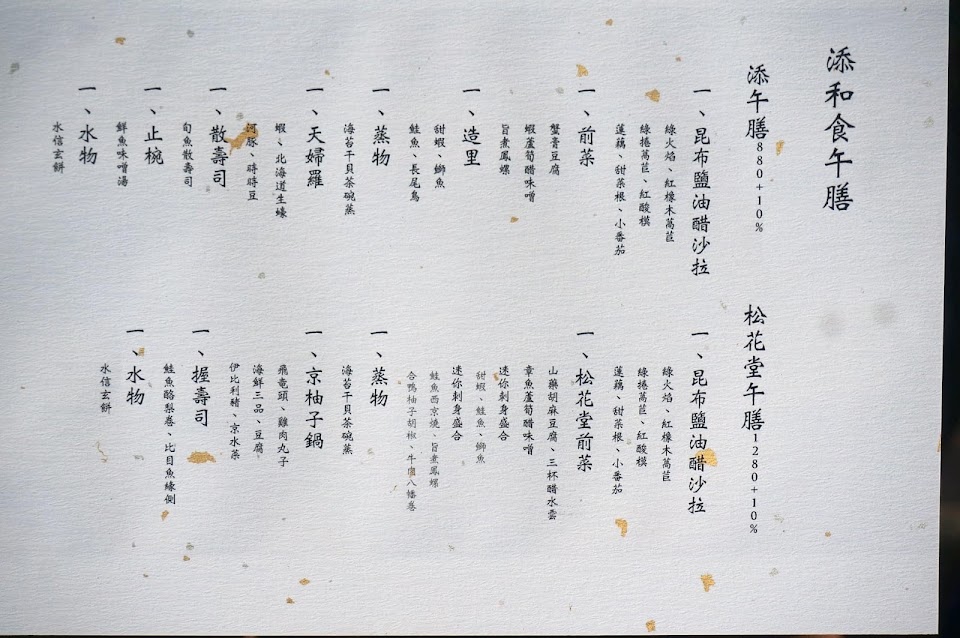 添和食午膳
添午膳880+10%
一、昆布鹽油醋沙拉
綠火焰、紅橡木萵苣
綠捲萵苣、紅酸模
蓮藕、甜菜根、小番茄
一、前菜
蟹膏豆腐
蝦蘆筍醋味噌
旨煮鳳螺
一、造里
甜蝦、鰤魚
鮭魚、長尾鳥
一、蒸物
海苔干貝茶碗蒸
一、天婦羅
蝦、北海道生蠔
河豚、蒔蒔豆
一、散壽司
旬魚散壽司
一、止椀
鮮魚味噌湯
一、水物
水信玄餅
松花堂午膳1280+10%
一、昆布鹽油醋沙拉
綠火焰、紅橡木萵苣
綠捲萵苣、紅酸模
蓮藕、甜菜根、小番茄
一、松花堂前菜
山藥胡麻豆腐、三杯醋水雲
章魚蘆筍醋味噌
迷你刺身盛合
甜蝦、鮭魚、鰤魚
迷你刺身盛合
鮭魚西京燒、旨煮鳳螺
合鴨柚子胡椒、牛肉八幡卷
一、蒸物
海苔干貝茶碗蒸
一、京柚子鍋
飛竜頭、雞肉丸子
海鮮三品、豆腐
伊比利豬、京水菜
一、握壽司
鮭魚酪梨卷、比目魚緣側
一、水物
水信玄餅